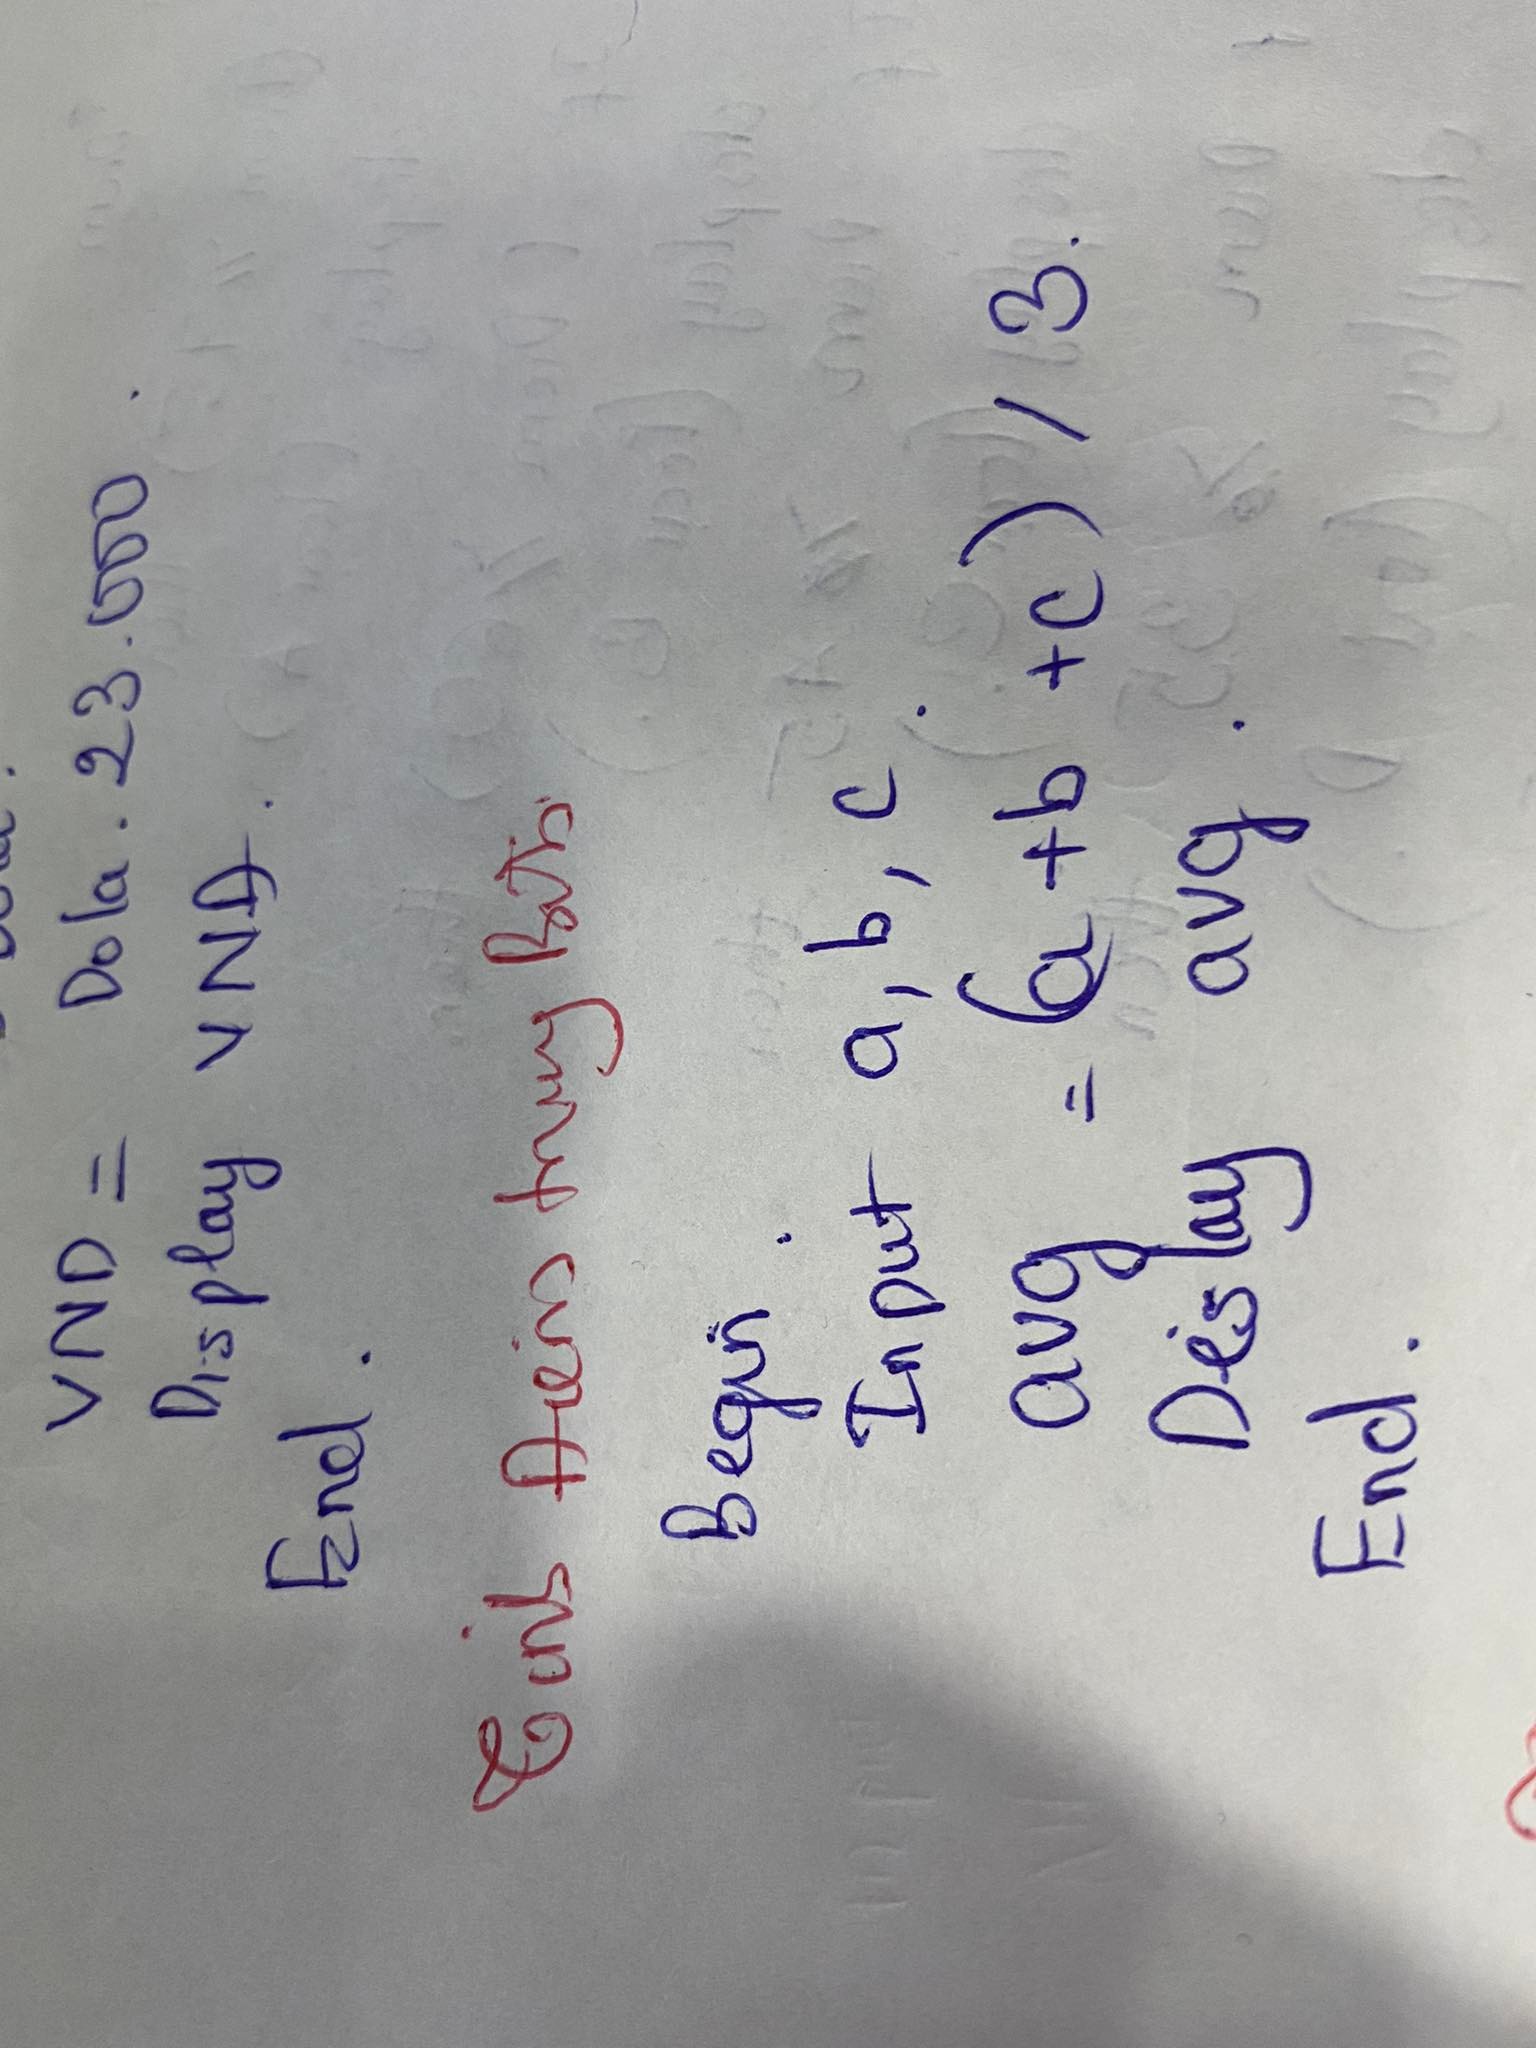 VND = Dola . 23.000 .
Display VND .
End .
Tính điểm trung bình
Begin .
Input a, b, c .
avg = (a + b + c) / 3 .
Display avg .
End .